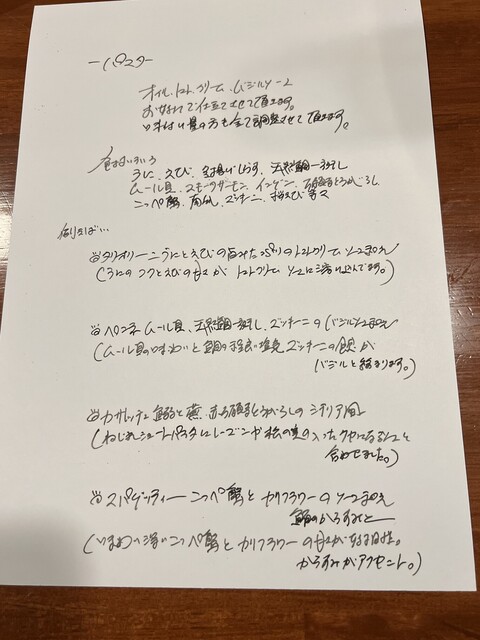 ーパスター
オイル、トマト、クリーム、バジルソース
お好みで仕立てさせて頂きます。
味わい量の方も全て調整させて頂きます。
食材いろいろ
うに、えび、釜揚しらす、天然鯛一夜干し
ムール貝、スモークサーモン、インゲン、万願寺とうがらし
こっぺ蟹、ズッキーニ、桜えび 等々
例えば…
タリオリーニ うにとえびの旨みたっぷりのトマトクリームソース和え
(うにのコクとえびの甘さがトマトクリームソースに溶け込んでます。)
ペンネ ムール貝、天然鯛一夜干し、ズッキーニのバジルソース和え
(ムール貝の味わいと鯛の程良い塩気 ズッキーニの食感が
バジルと絡まります。)
カサレッチェ と 赤万願寺とうがらしのシチリア風
(ねじれショートパスタにレーズンや松の実の入ったクセになるソースと
合わせました。)
スパゲッティー こっぺ蟹とカリフラワーのソース和え
からすみと
(味わい深いこっぺ蟹とカリフラワーの甘さが好相性。
からすみがアクセント。)